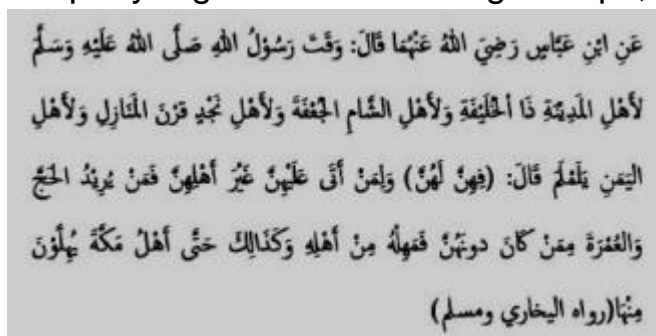 عَنِ ابْنِ عَبَّاسٍ رَضِيَ اللهُ عَنْهُمَا قَالَ: وَقَّتَ رَسُوْلُ اللهِ صَلَّى اللهُ عَلَيْهِ وَسَلَّمَ
لأَهْلِ المَدِيْنَةِ ذَا الْحُلَيْفَةِ وَلأَهْلِ الشَّامِ الجُحْفَةَ وَلأَهْلِ نَجْدٍ قَرْنَ المَنَازِلِ وَلأَهْلِ
اليَمَنِ يَلَمْلَمَ قَالَ: (فَهِنَّ لَهُنَّ) وَلِمَنْ أَتَى عَلَيْهِنَّ غَيْرُ أَهْلِهِنَّ فَمَنْ يُرِيْدُ الحَجَّ
وَالعُمْرَةَ مِمَنْ كَانَ دونَهُنَّ فَمَهِلُّهُ مِنْ أَهْلِهِ وَكَذَالِكَ حَتَّى أَهْلُ مَكَّةَ يُهِلُّوْنَ
مِنْهَا(رواه البخاري ومسلم)